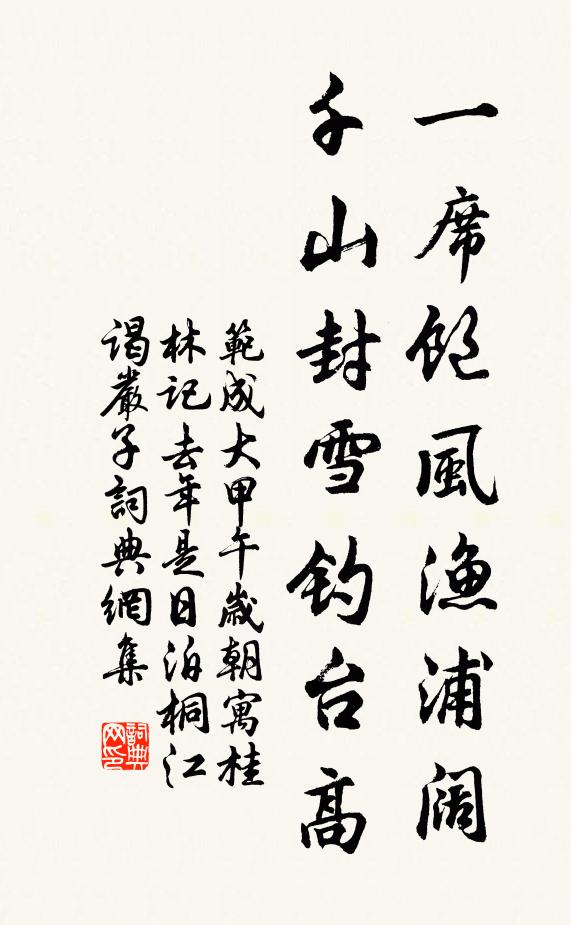 一席飽風漁浦闊
千山封雪釣台高
範成大甲午歲朝寓桂
林記去年是日泊桐江
謁嚴子詞典網集
詞典网印